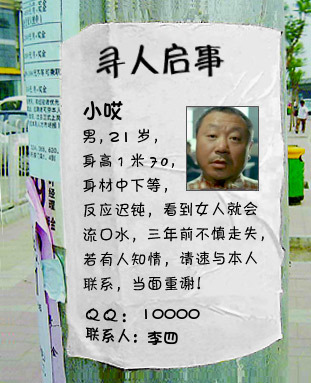 寻人启事
小哎
男,21岁,
身高1米70,
身材中下等,
反应迟钝，看到女人就会
流口水，三年前不慎走失,
若有人知情，请速与本人
联系，当面重谢!
QQ: 10000
联系人: 李四